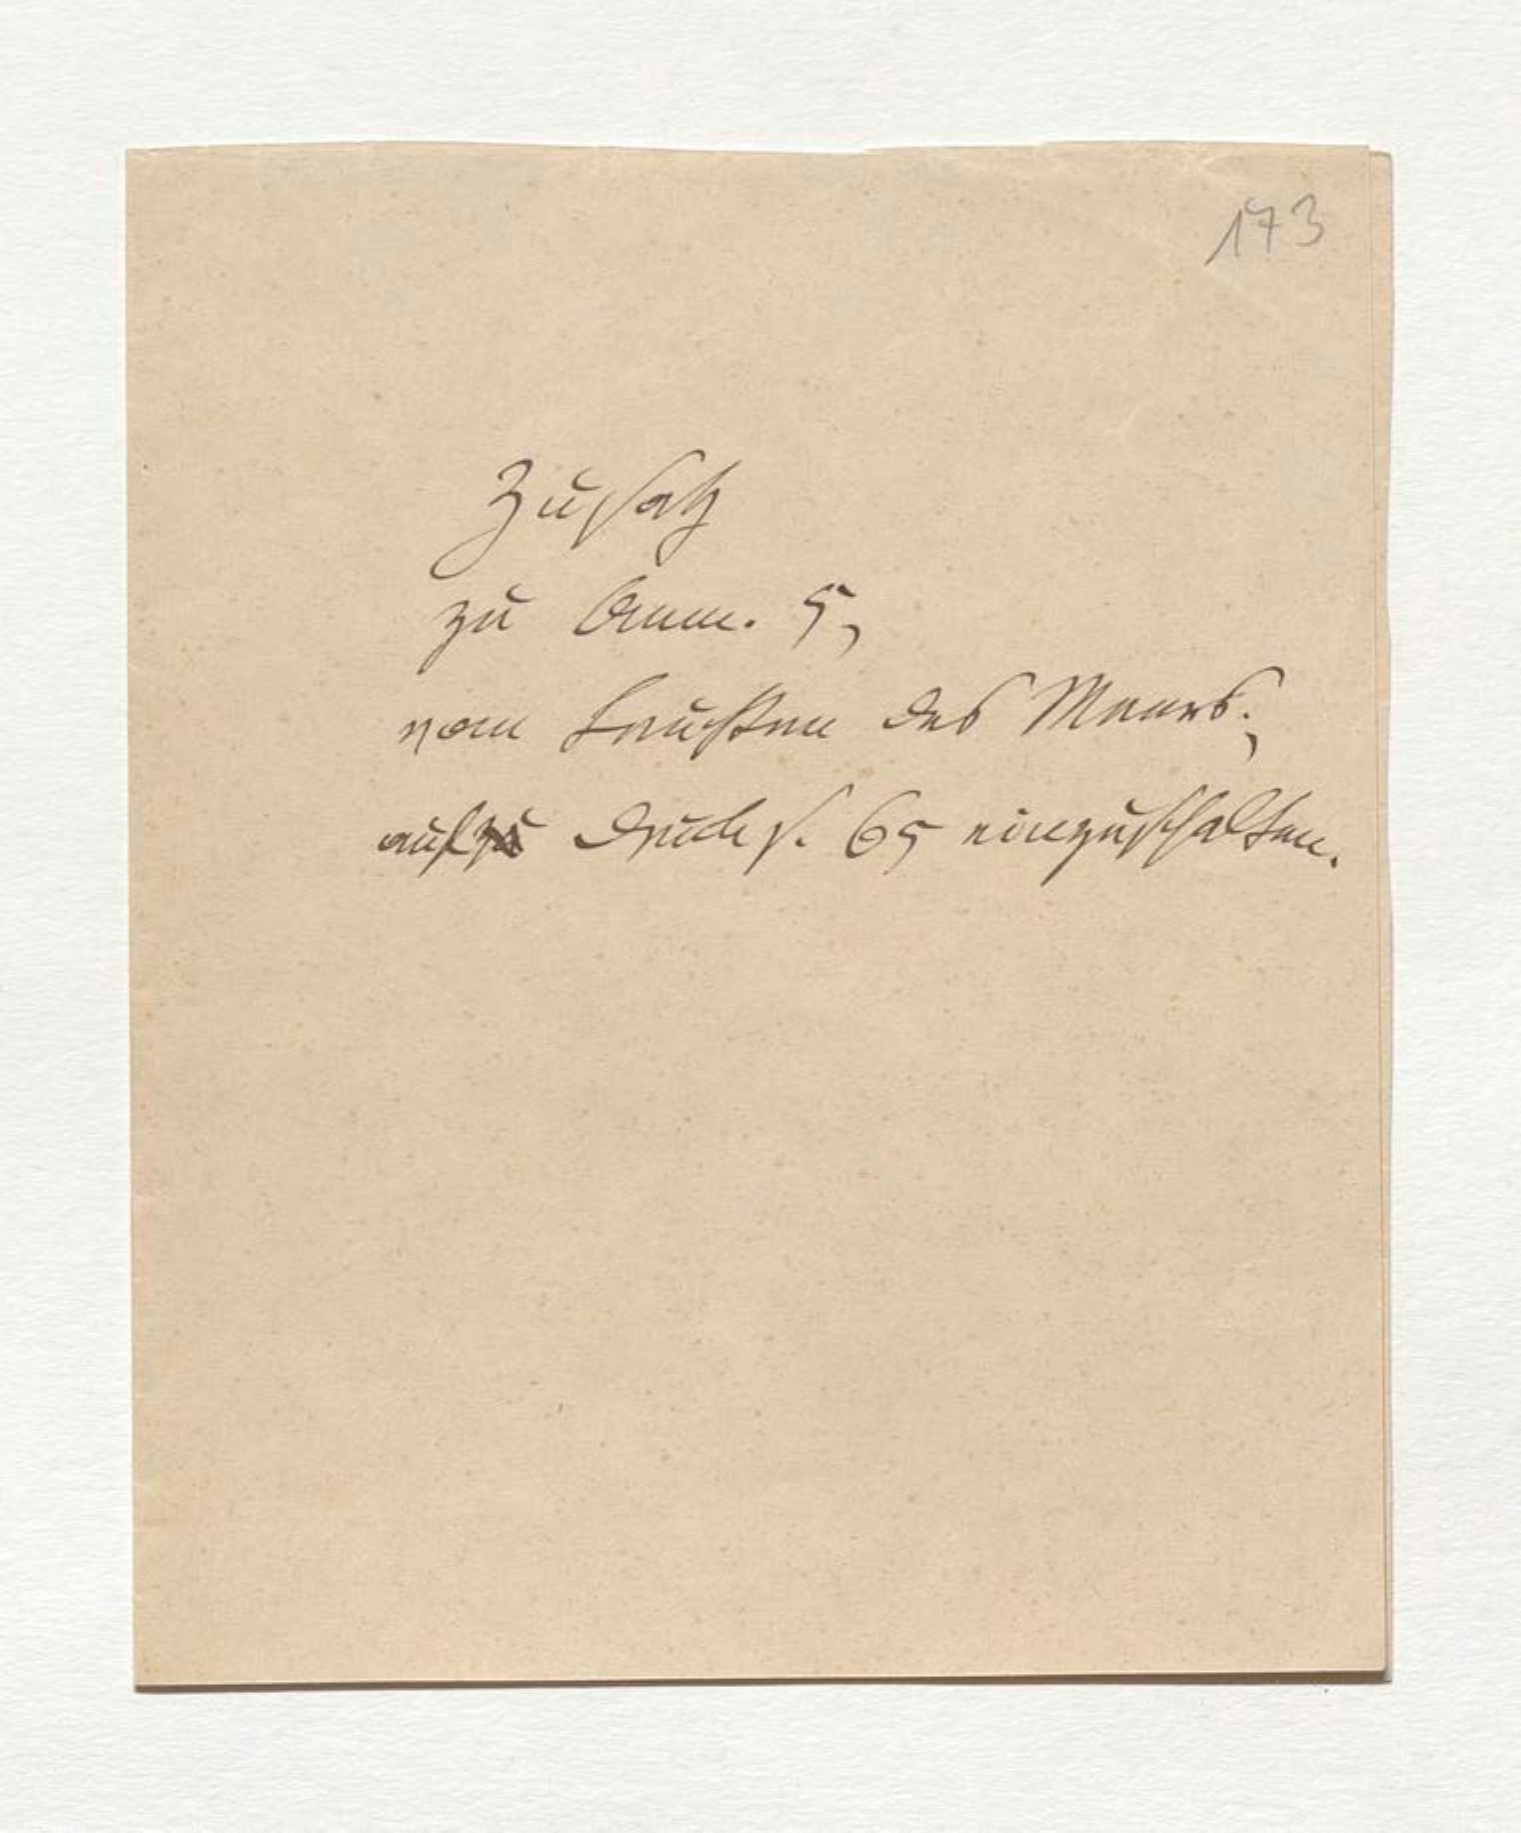 173
Zusatz
zu Anm. 5,
vom Leuchten des Meers;
auf Druck S. 65 einzuschalten.